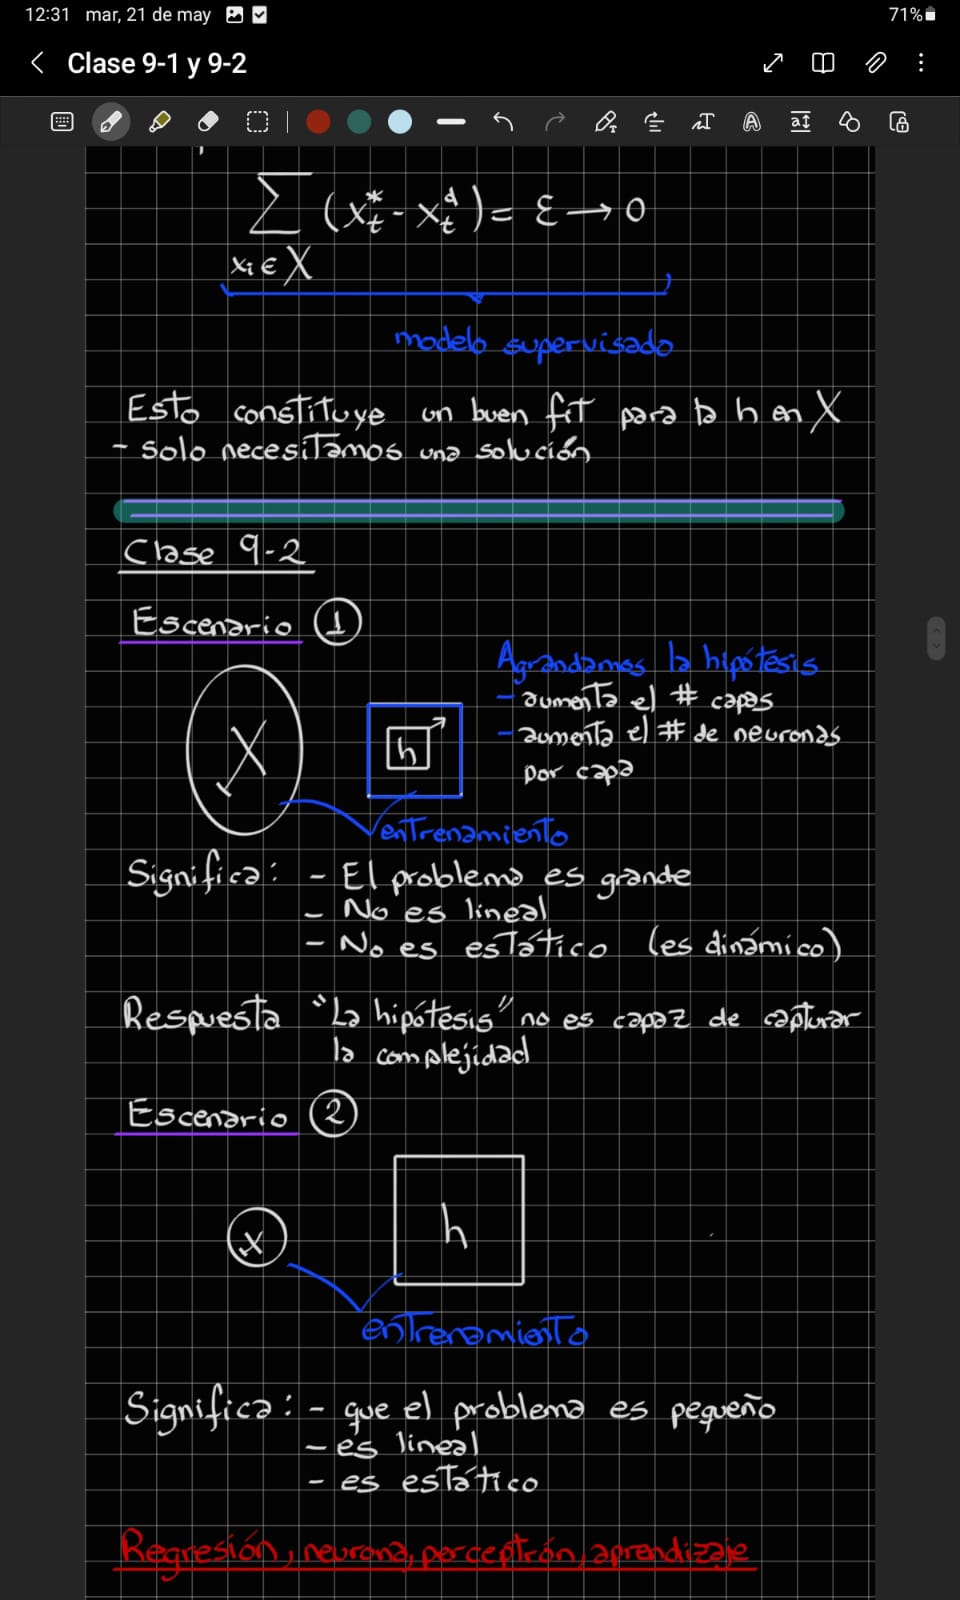 12:31 mar, 21 de may 71%
Clase 9-1 y 9-2
∑ (x*t - x^d t) = ε → 0
xi ∈ X
modelo supervisado
Esto constituye un buen fit para la h en X
- solo necesitamos una solución
Clase 9-2
Escenario 1
Agrandamos la hipótesis
- aumenta el # capas
- aumenta el # de neuronas
por capa
X h
entrenamiento
Significa: - El problema es grande
- No es lineal
- No es estático (es dinámico)
Respuesta "La hipótesis" no es capaz de capturar
la complejidad
Escenario 2
x h
entrenamiento
Significa: - que el problema es pequeño
- es lineal
- es estático
Regresión, neurona, perceptrón, aprendizaje